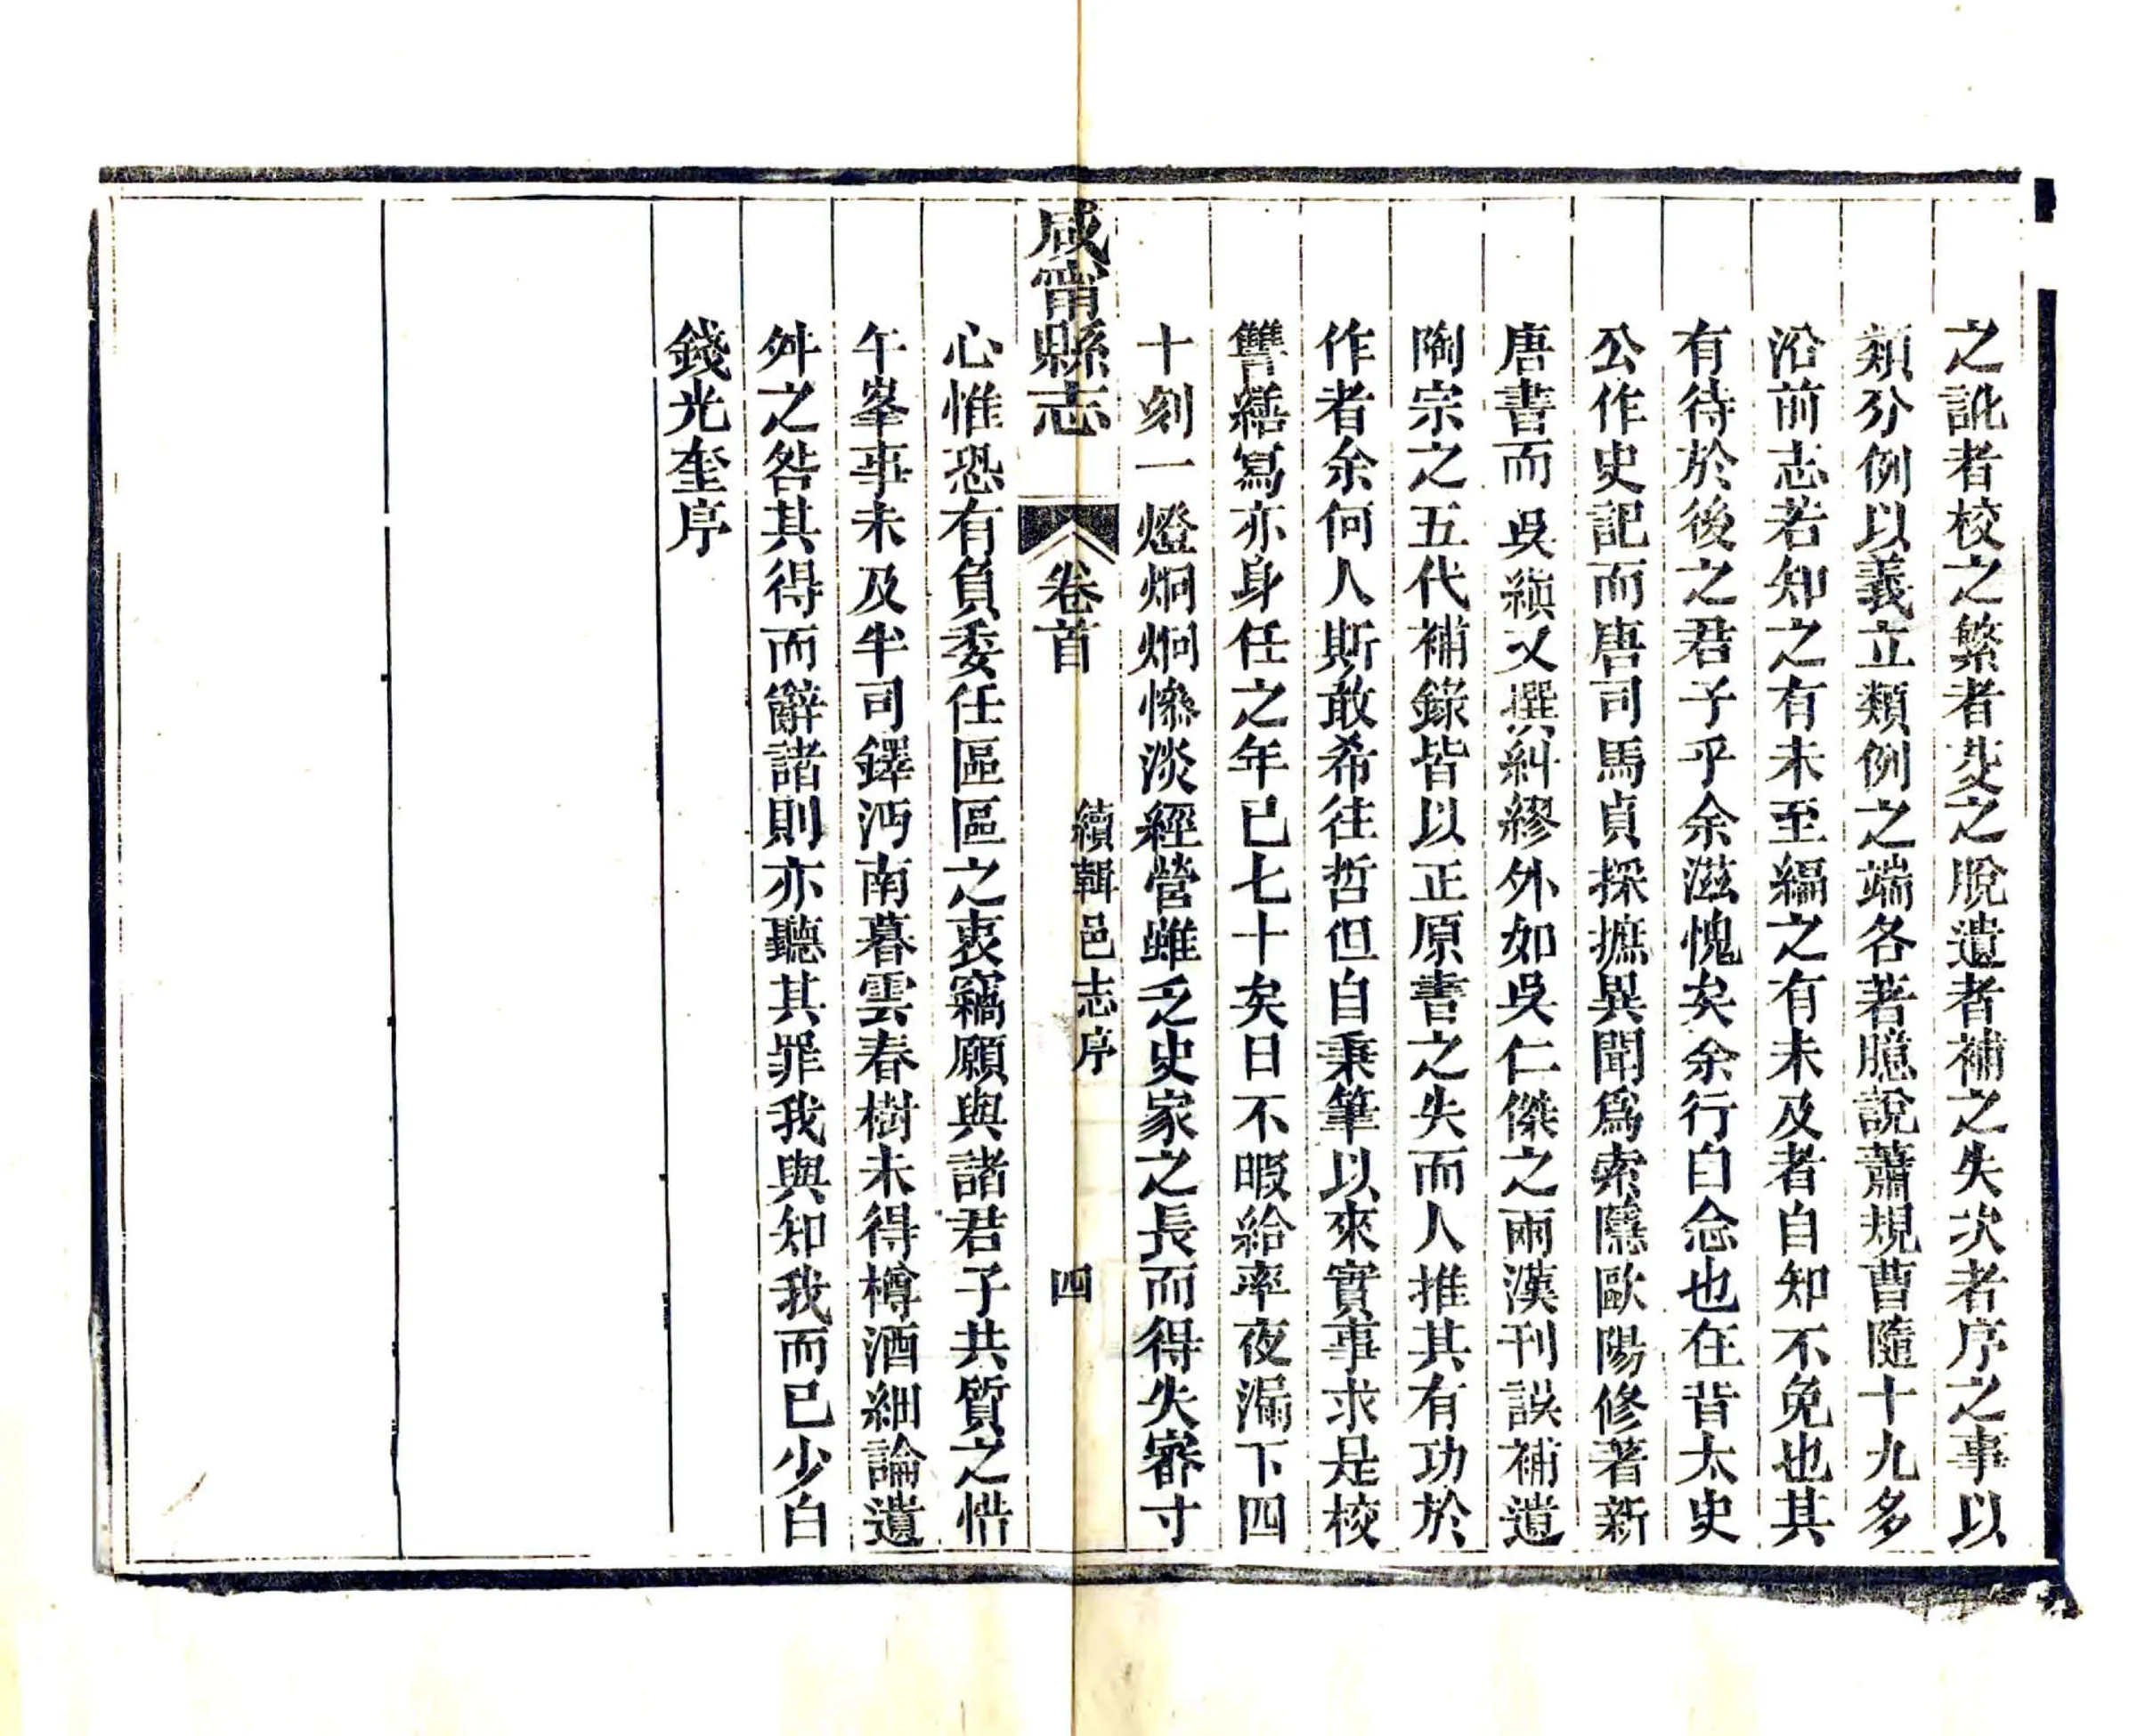 之訛者校之繁者芟之脫遺者補之失次者序之事以
類分例以義立類例之端各著臆說蕭規曹隨十九多
沿前志若知之有未至編之有未及者自知不免也其
有待於後之君子乎余滋愧矣余行自念也在昔太史
公作史記而唐司馬貞採摭異聞爲索隱歐陽修著新
唐書而吳縝又撰糾繆外如吳仁傑之兩漢刊誤補遺
陶宗之五代補錄皆以正原書之失而人推其有功於
作者余何人斯敢希往哲但自秉筆以來實事求是校
讐繕寫亦身任之年已七十矣日不暇給率夜漏下四
十刻一燈炯炯慘淡經營雖乏史家之長而得失審寸
咸甯縣志
卷首
續輯邑志序
四
心惟恐有負委任區區之衷竊願與諸君子共質之惜
午峯事未及半司鐸沔南暮雲春樹未得樽酒細論遺
舛之咎其得而辭諸則亦聽其罪我與知我而已少白
錢光奎序